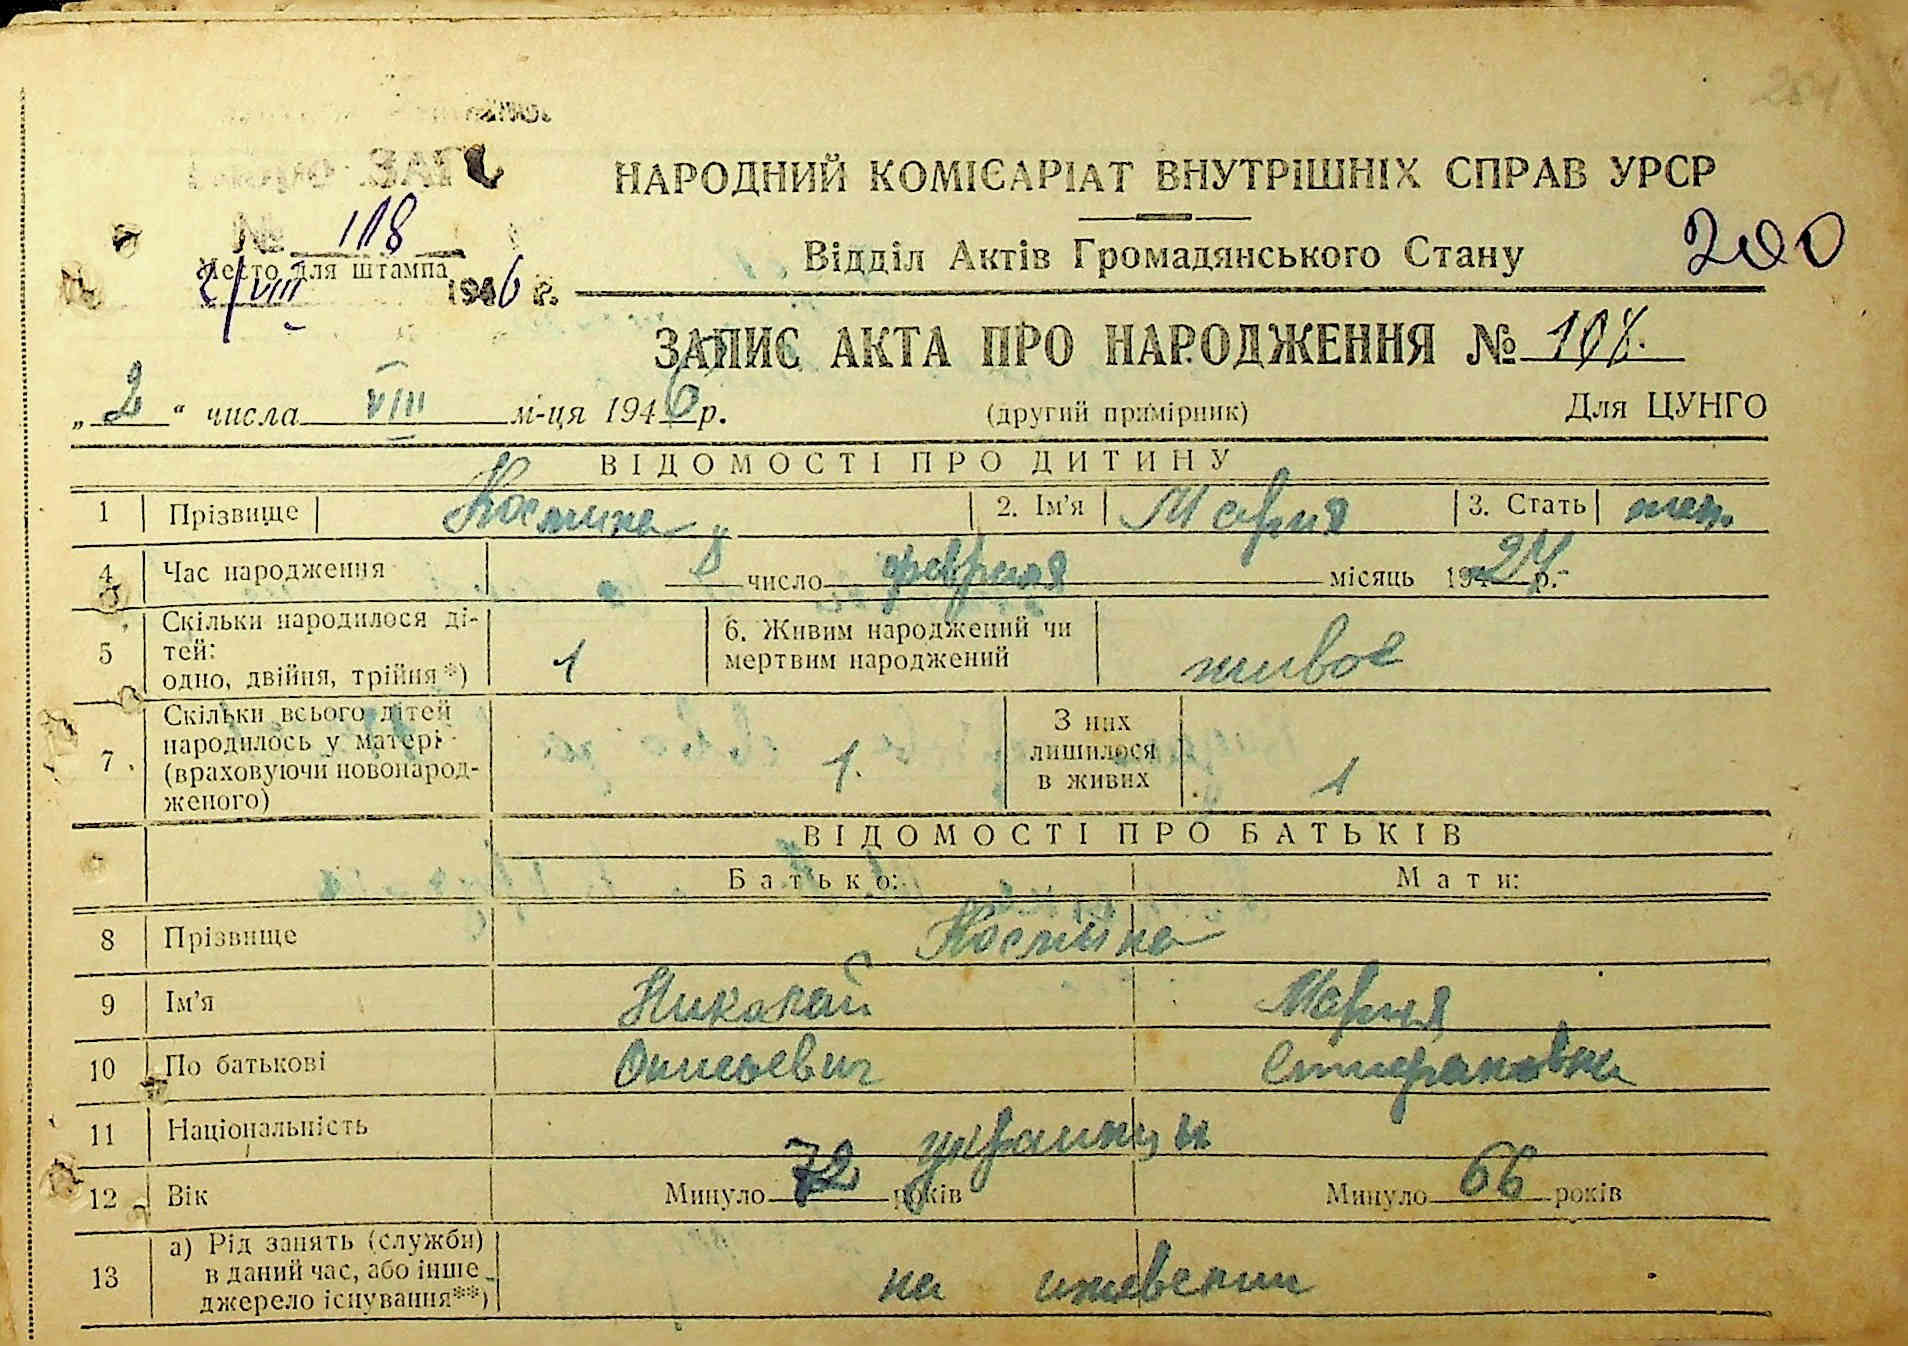 НАРОДНИЙ КОМІСАРІАТ ВНУТРІШНІХ СПРАВ УРСР
№ 118
Место для штампа
2/VIII 1946 г.
Відділ Актів Громадянського Стану
200
ЗАПИС АКТА ПРО НАРОДЖЕННЯ №
„2“ числа VIII м-ця 1946 р.
(другий примірник) Для ЦУНГО
ВІДОМОСТІ ПРО ДИТИНУ
1 Прізвище 2. Ім'я Мария 3. Стать жен.
4 Час народження 8 число февраля місяць
5 Скільки народилося ді-
тей:
одно, двійня, трійня*) 1
6. Живим народжений чи
мертвим народжений живое
7 Скільки всього дітей
народилось у матері
(враховуючи новонарод-
женого) 1.
З них
лишилося
в живих 1
ВІДОМОСТІ ПРО БАТЬКІВ
Батько: Мати:
8 Прізвище
9 Ім'я Николай Мария
10 По батькові Стефановна
11 Національність украинцы
12 Вік Минуло 72 років Минуло 66 років
13 а) Рід занять (служби)
в даний час, або інше
джерело існування**) на ижевении